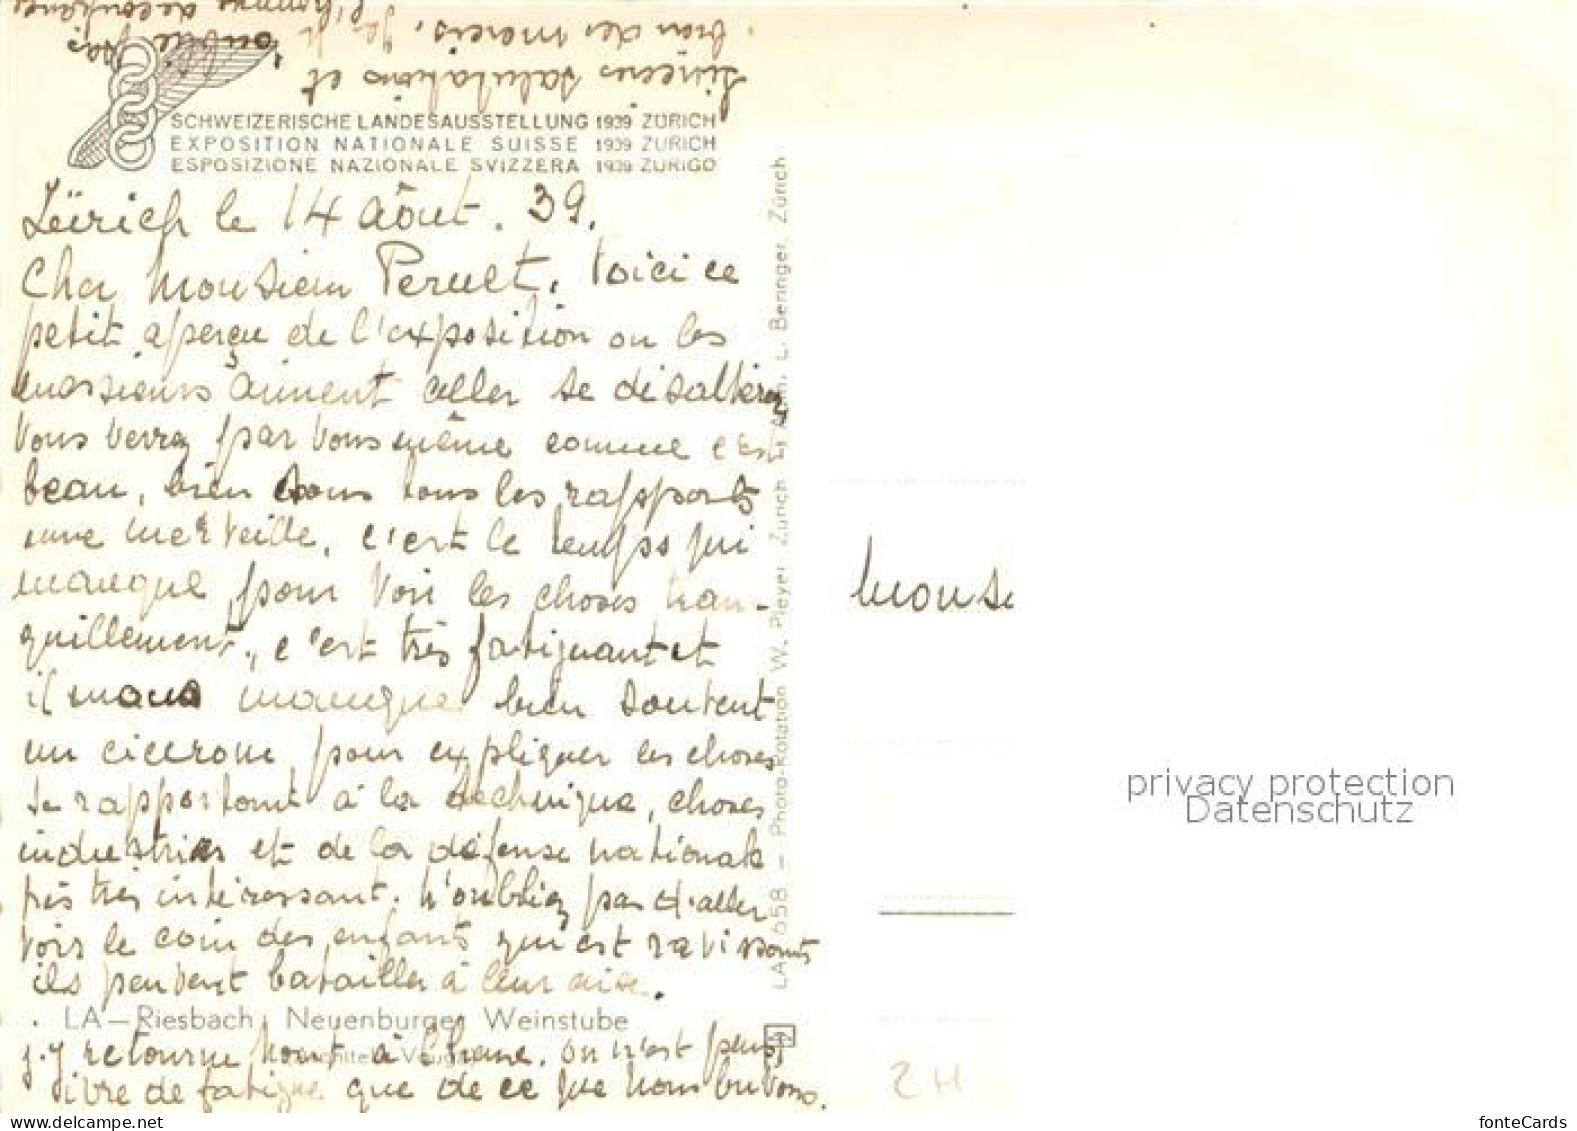 Sincères salutations et
bien des mercis,
SCHWEIZERISCHE LANDESAUSSTELLUNG 1939 ZÜRICH
EXPOSITION NATIONALE SUISSE 1939 ZURICH
ESPOSIZIONE NAZIONALE SVIZZERA 1939 ZURIGO
Zürich le 14 aôut. 39.
Cher Monsieur Perret. Voici ce
petit aperçu de l'exposition ou les
messieurs aiment aller se désaltérez
vous verrez par vous même comme c'est
beau, bien sous tous les rapports
une merveille, c'est le temps qui
manque pour voir les choses tran-
quillement, c'est très fatiguant et
il nous manque bien souvent
un cicerone pour expliquer les choses
se rapportant à la technique, choses
industries et de la défense nationale
très intéressant. N'oubliez pas d'aller
voir le coin des enfants qui est ravissant
ils peuvent batailler à leur aise.
LA—Riesbach, Neuenburger Weinstube
j'y retourne à
ivre de fatigue que de ce que nous buvons.
LA 058 — Photo-Rotation W. Pleyer Zürich L. Beringer, Zürich
Monsi
2H
privacy protection
Datenschutz
delcampe.net
fonteCards